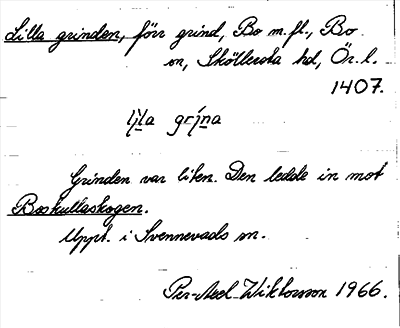 Lilla grinden, förr grind, Bo m.fl., Bo
sn, Sköllersta hd, Ör. l.
1407.
lịla grína
Grinden var liten. Den ledde in mot
Boskullaskogen.
Uppt. i Svennevads sn.
Per-Axel Wiktorsson 1966.